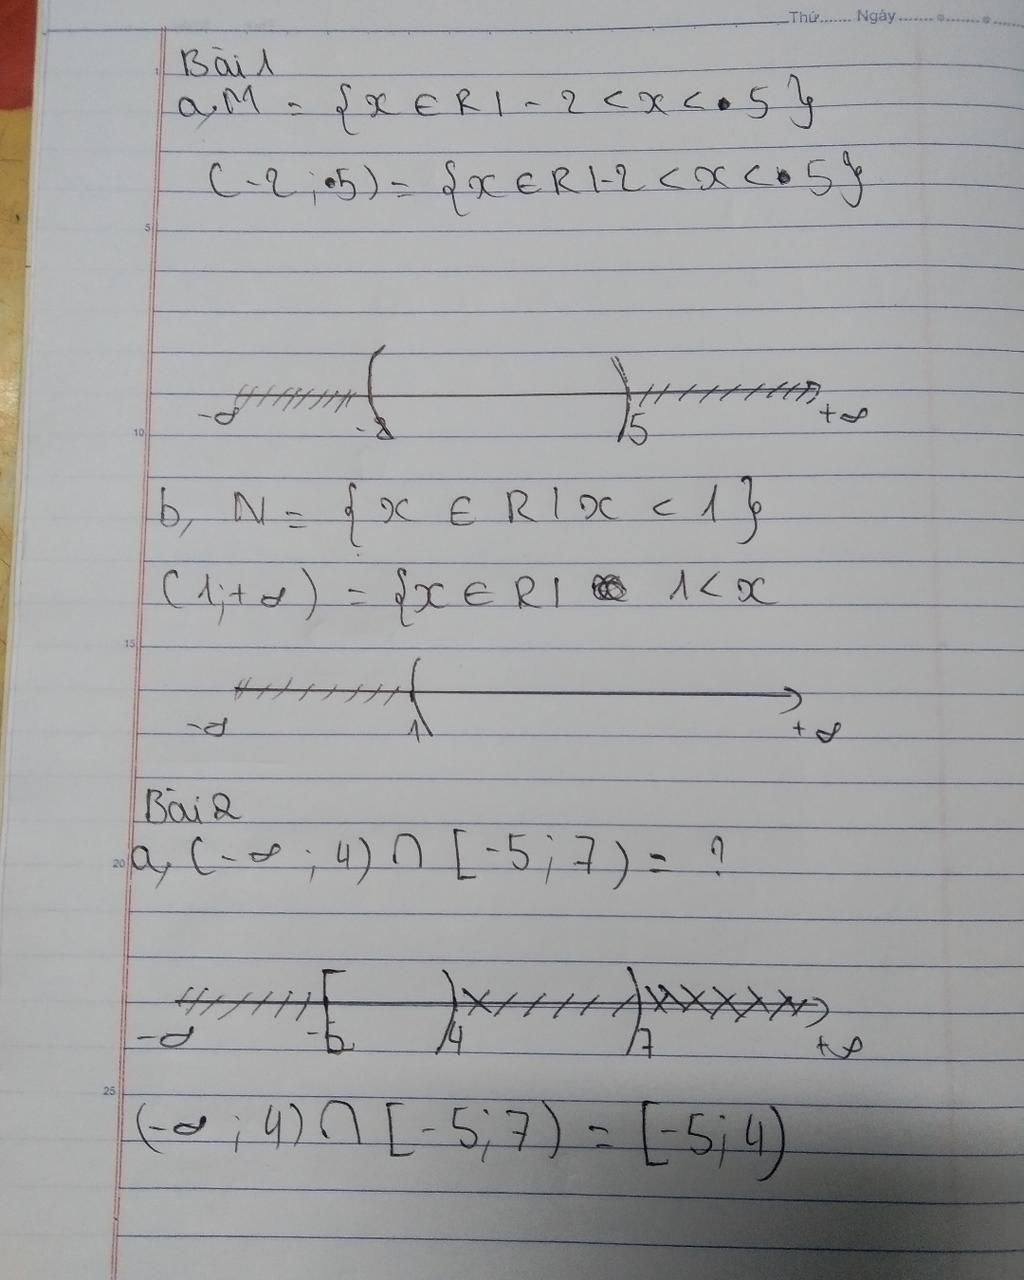 Thứ....... Ngày
Bài 1
a, M = {x ∈ R | -2 < x < 5}
(-2 ; 5) = {x ∈ R | -2 < x < 5}
5
-∞ -2 5 +∞
10
b, N = {x ∈ R | x < 1}
(1; +∞) = {x ∈ R | 1 < x
15
-∞ 1 +∞
Bài 2
20
a, (-∞ ; 4) ∩ [-5; 7) = ?
-∞ -5 4 7 +∞
25
(-∞ ; 4) ∩ [-5; 7) = [-5; 4)